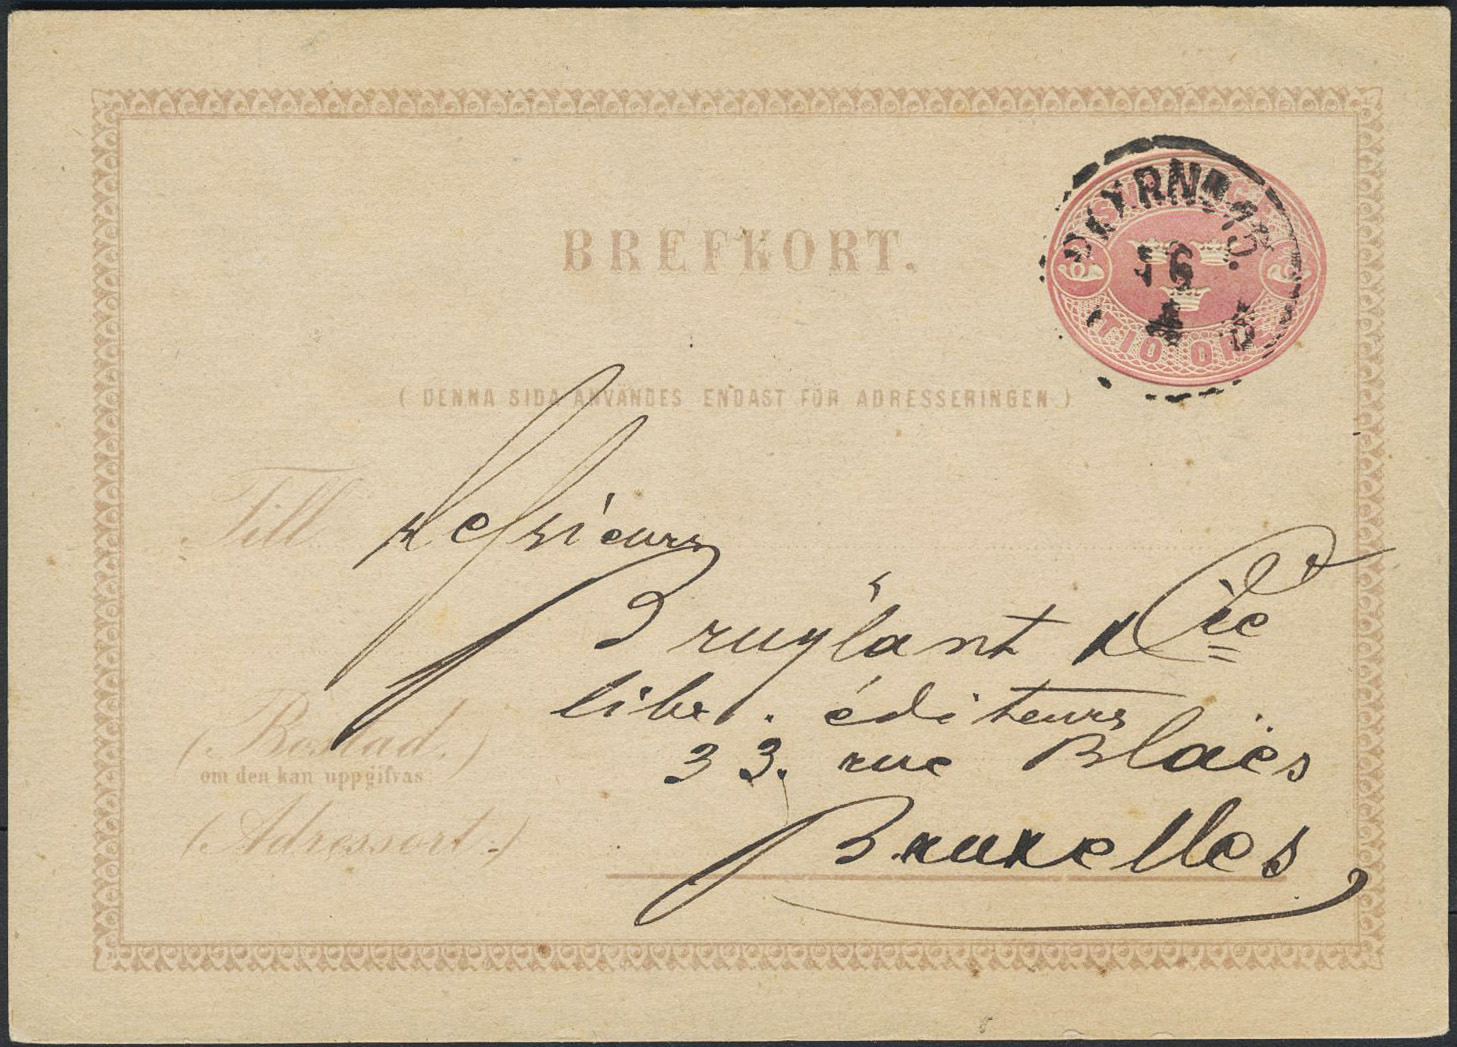 BREFKORT.
SVERIGE
TIO ÖRE
16
4
( DENNA SIDA ANVÄNDES ENDAST FÖR ADRESSERINGEN )
Till Messieurs
Bruylant & Cie
libr. éditeurs
(Bostad.)
om den kan uppgifvas
33. rue Blaës
(Adressort.)
Bruxelles